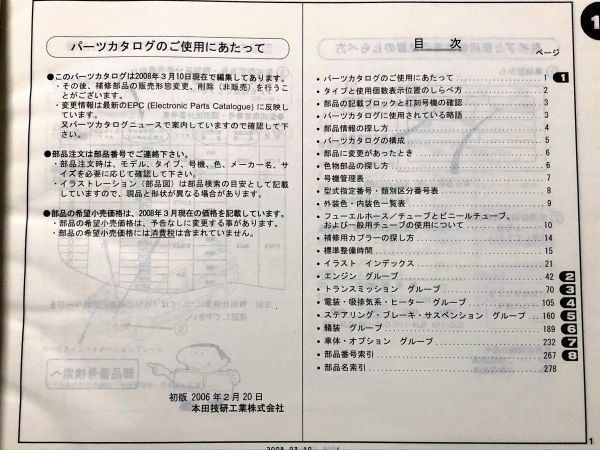 パーツカタログのご使用にあたって
●このパーツカタログは2008年3月10日現在で編集してあります。
・その後、補修部品の販売形態変更、削除（非販売）を行うことがございます。
・変更情報は最新のEPC (Electronic Parts Catalogue) に反映しています。
又パーツカタログニュースで案内していますので確認して下さい。
●部品注文は部品番号でご連絡下さい。
・部品注文時は、モデル、タイプ、号機、色、メーカー名、サイズを必要に応じて確認して下さい。
・イラストレーション（部品図）は部品検索の目安として記載していますので、現品と形状が異なる場合があります。
●部品の希望小売価格は、2008年3月現在の価格を記載しています。
・部品の価格は、予告なしに変更する事があります。
・部品の希望小売価格には消費税は含まれていません。
初版 2006年2月20日
本田技研工業株式会社
目 次
ページ
・パーツカタログのご使用にあたって 1
・タイプと使用個数表示位置のしらべ方 2
・部品の記載ブロックと打刻号機の確認 3
・パーツカタログに使用されている略語 3
・部品情報の探し方 4
・パーツカタログの構成 5
・部品に変更があったとき 6
・色物部品の探し方 6
・号機管理表 7
・型式指定番号・類別区分番号表 8
・外装色・内装色一覧表 9
・フューエルホース／チューブとビニールチューブ、
および一般用チューブの使用について 10
・補修用カプラーの探し方 14
・標準整備時間 15
・イラスト インデックス 21
・エンジン グループ 42 2
・トランスミッション グループ 70 3
・電装・吸排気系・ヒーター グループ 105 4
・ステアリング・ブレーキ・サスペンション グループ 160 5
・艤装 グループ 189 6
・車体・オプション グループ 232 7
・部品番号索引 267 8
・部品名索引 278
1
1